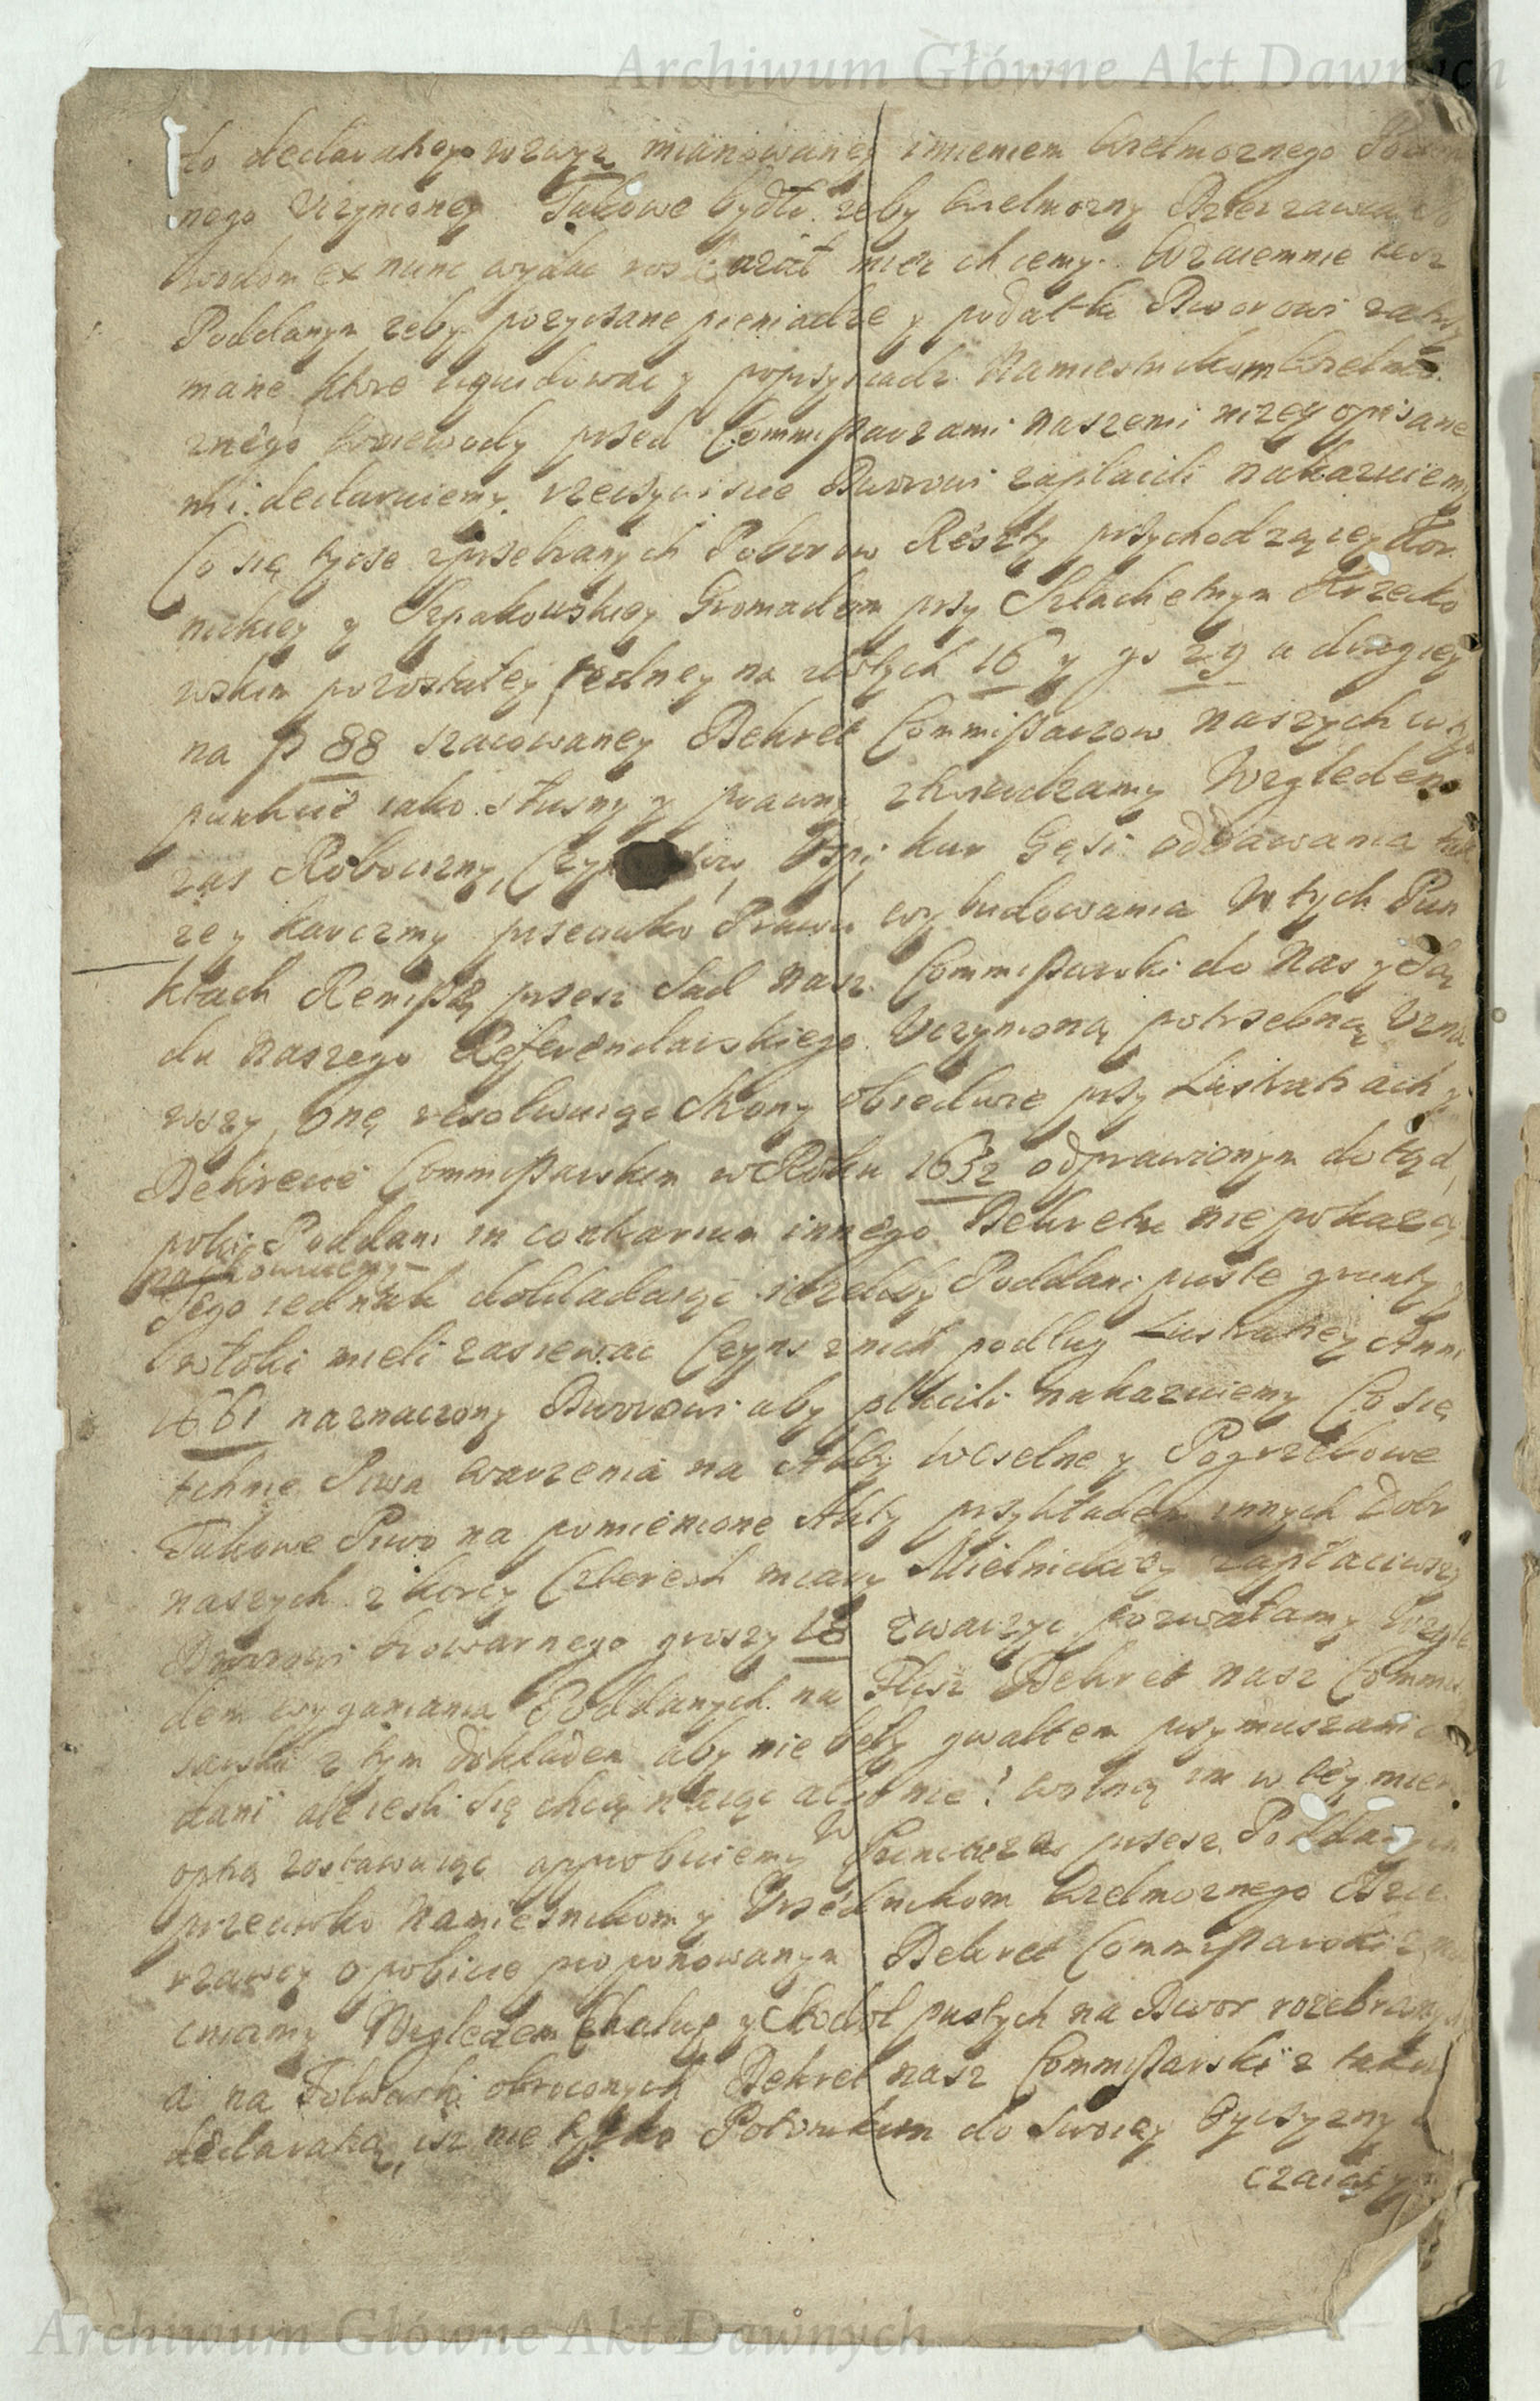 Archiwum Główne Akt Dawnych
to declaratiey wzwyż mianowaney imieniem Wielmoznego
nego Uczynioney Takowe bydło zeby Wielmozny Dzierzawca
ex nunc wydac roskazał miec chcemy. Wzaiemnie tesz
Poddanym zeby pozyczane pieniadze y podatki Dworowi zatrzy
mane ktore liquidowac y poprzysiadz Namiesnikom Wielmo
znego Woiewody przed Commissarzami naszemi nizey opisane
mi declaruiemy rzeczywiscie Dworowi zaplacili nakazuiemy
Co się tycze zprzebranych Poborow Reszty przychodzącey Kor
nickiey y Szpakowskiey Gromadom przy Szlachetnym Krzecko
wskim pozostałey, iedney na złotych 16 y gr 29 a drugiey
na fl 88 szacowaney Dekret Commissarzow naszych w tym
punkcie iako słuszny y prawny ztwierdzamy Względem
zas Robocizny, Kur Gęsi oddawania tak
ze y karczmy przeciwko Prawu wybudowania W tych Pun
ktach Remissę przesz Sąd nasz Commissarski do Nas y Są
du naszego Referendarskiego Uczynioną potrzebną Uzna
wszy, onę resolwuiąc strony obiedwie przy Lustratiach y
Dekrecie Commissarskim w Roku 1632 odprawionym dotąd,
poki Poddani in contrarium innego Dekretu nie pokazą
zachowuiemy
Tego iednak dokladaiąc iezeliby Poddani puste grunty
włoki mieli zasiewac Czynsz z nich podlug Lustratiey Anni
1661 naznaczony Dworowi aby płacili nakazuiemy Co się
tchnie Piwa warzenia na Akty Weselne y Pogrzebowe
Takowe Piwo na pomienione Akty przykładem innych Dobr
naszych z korcy Czterech miary Mielnickiey zapłaciwszy
Dworowi browarnego groszy 18 zwarzyc pozwalamy Wzglę
dem wyganiania Poddanych na Flisz Dekret nasz Commis
sarski z tym dokładem aby nie byli gwałtem przymuszani
dani ale iesli się chcą naiąc albo nie! wolną im w tey mierze
optią zostawuiąc approbuiemy W Poenach zas przesz Poddanych
przeciwko Namiesnikom y Urzędnikom Wielmoznego Dzie
rzawcy o pobicie proponowanym Dekret Commissarski
cniamy Względem Chałup y Stodoł pustych na Dwor rozebranych
a na Folwarki obroconych Dekret nasz Commissarski z taką
declaratią, isz nie tylko Potomkom do swoiey Oyczyzny
czaiąc
Archiwum Główne Akt Dawnych